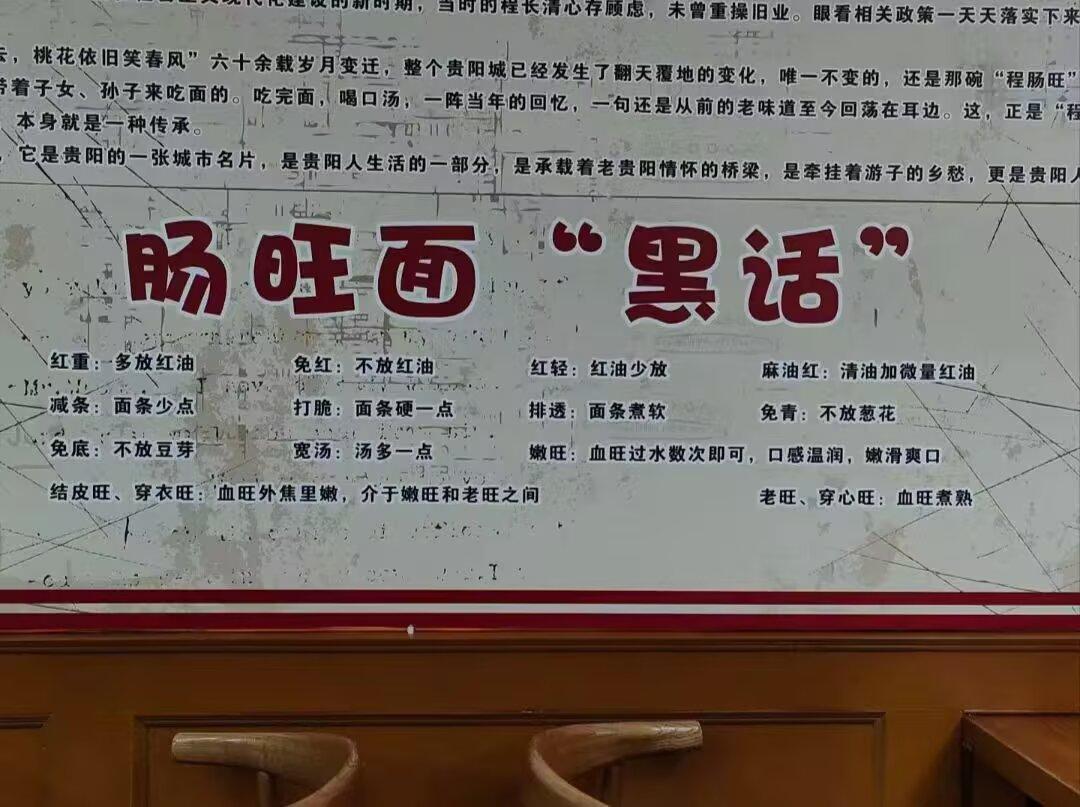 现代化建设的新时期，当时的程长清心存顾虑，未曾重操旧业。眼看相关政策一天天落实下来
去，桃花依旧笑春风”六十余载岁月变迁，整个贵阳城已经发生了翻天覆地的变化，唯一不变的，还是那碗“程肠旺”
带着子女、孙子来吃面的。吃完面，喝口汤，一阵当年的回忆，一句还是从前的老味道至今回荡在耳边。这，正是“程
本身就是一种传承。
，它是贵阳的一张城市名片，是贵阳人生活的一部分，是承载着老贵阳情怀的桥梁，是牵挂着游子的乡愁，更是贵阳人
肠旺面“黑话”
红重：多放红油 免红：不放红油 红轻：红油少放 麻油红：清油加微量红油
减条：面条少点 打脆：面条硬一点 排透：面条煮软 免青：不放葱花
免底：不放豆芽 宽汤：汤多一点 嫩旺：血旺过水数次即可，口感温润，嫩滑爽口
结皮旺、穿衣旺：血旺外焦里嫩，介于嫩旺和老旺之间 老旺、穿心旺：血旺煮熟